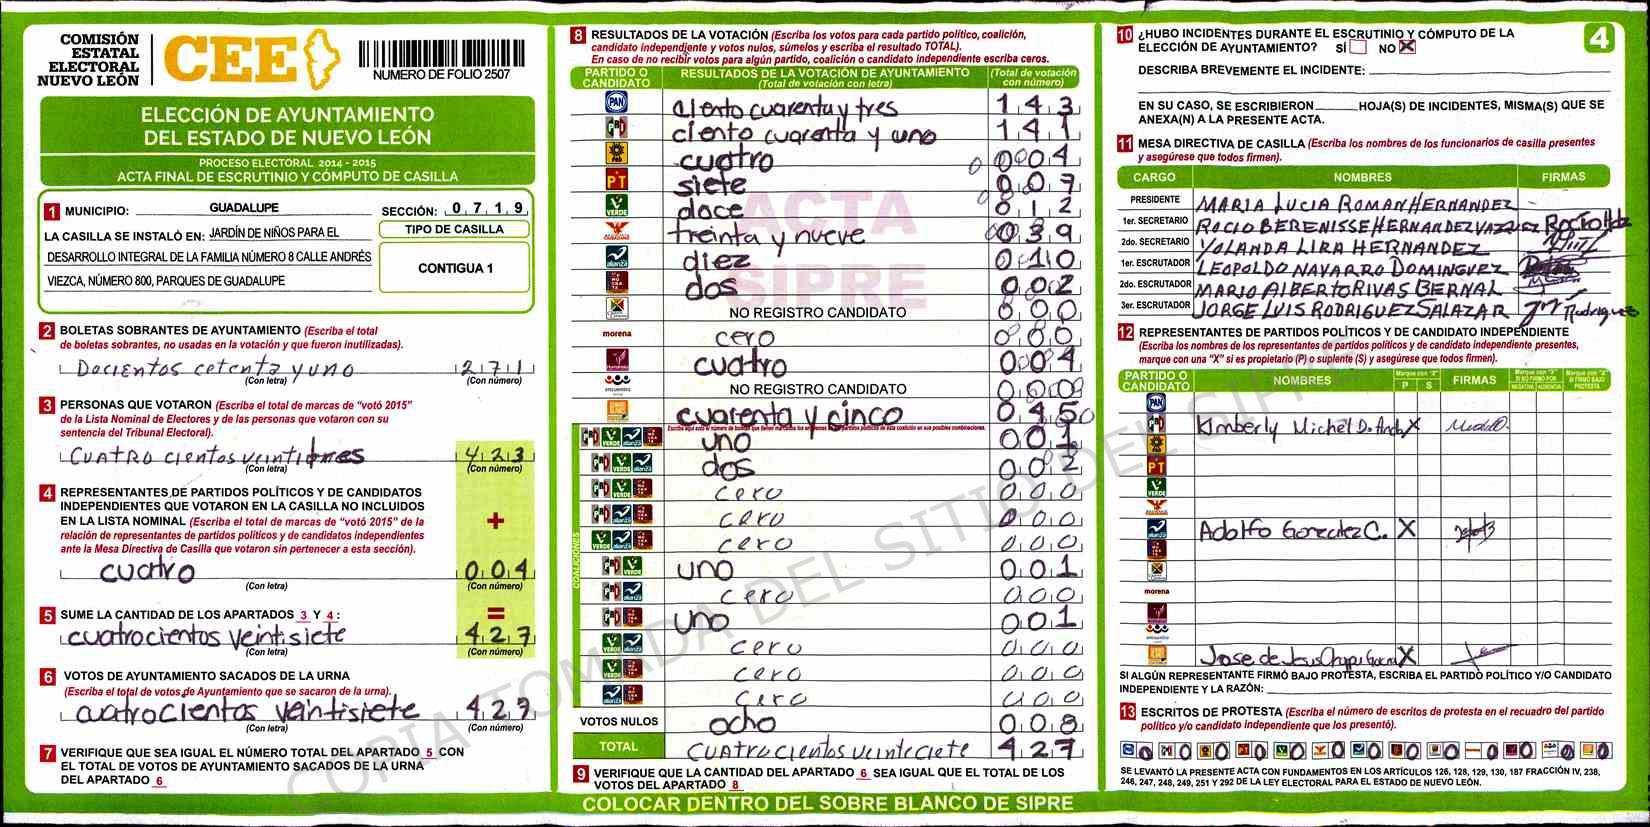 COMISIÓN
ESTATAL
ELECTORAL
NUEVO LEÓN
CEE
NUMERO DE FOLIO 2507
ELECCIÓN DE AYUNTAMIENTO
DEL ESTADO DE NUEVO LEÓN
PROCESO ELECTORAL 2014 - 2015
ACTA FINAL DE ESCRUTINIO Y CÓMPUTO DE CASILLA
1 MUNICIPIO: GUADALUPE SECCIÓN: 0719
LA CASILLA SE INSTALÓ EN: JARDÍN DE NIÑOS PARA EL
DESARROLLO INTEGRAL DE LA FAMILIA NÚMERO 8 CALLE ANDRÉS
VIEZCA, NÚMERO 800, PARQUES DE GUADALUPE
TIPO DE CASILLA
CONTIGUA 1
2 BOLETAS SOBRANTES DE AYUNTAMIENTO (Escriba el total
de boletas sobrantes, no usadas en la votación y que fueron inutilizadas).
Docientos cetenta y uno 271
(Con letra) (Con número)
3 PERSONAS QUE VOTARON (Escriba el total de marcas de “votó 2015”
de la Lista Nominal de Electores y de las personas que votaron con su
sentencia del Tribunal Electoral).
Cuatro cientos veintitres 423
(Con letra) (Con número)
4 REPRESENTANTES DE PARTIDOS POLÍTICOS Y DE CANDIDATOS
INDEPENDIENTES QUE VOTARON EN LA CASILLA NO INCLUIDOS
EN LA LISTA NOMINAL (Escriba el total de marcas de “votó 2015” de la
relación de representantes de partidos políticos y de candidatos independientes
ante la Mesa Directiva de Casilla que votaron sin pertenecer a esta sección).
+
cuatro 004
(Con letra) (Con número)
5 SUME LA CANTIDAD DE LOS APARTADOS 3 Y 4 : =
cuatrocientos veintisiete 427
(Con letra) (Con número)
6 VOTOS DE AYUNTAMIENTO SACADOS DE LA URNA
(Escriba el total de votos de Ayuntamiento que se sacaron de la urna).
cuatrocientos veintisiete 427
(Con letra) (Con número)
7 VERIFIQUE QUE SEA IGUAL EL NÚMERO TOTAL DEL APARTADO 5 CON
EL TOTAL DE VOTOS DE AYUNTAMIENTO SACADOS DE LA URNA
DEL APARTADO 6
8 RESULTADOS DE LA VOTACIÓN (Escriba los votos para cada partido político, coalición,
candidato independiente y votos nulos, súmelos y escriba el resultado TOTAL).
En caso de no recibir votos para algún partido, coalición o candidato independiente escriba ceros.
PARTIDO O CANDIDATO RESULTADOS DE LA VOTACIÓN DE AYUNTAMIENTO (Total de votación con letra) (Total de votación con número)
PAN ciento cuarenta y tres 143
PRI ciento cuarenta y uno 141
PRD cuatro 004
PT siete 007
VERDE doce 012
treinta y nueve 039
alianza diez 010
dos 002
NO REGISTRO CANDIDATO 000
morena cero 000
cuatro 004
encuentro NO REGISTRO CANDIDATO 000
cuarenta y cinco 045
COALICIONES
uno 001
dos 002
cero 000
cero 000
cero 000
uno 001
cero 000
uno 001
cero 000
cero 000
cero 000
VOTOS NULOS ocho 008
TOTAL cuatrocientos veinteciete 427
9 VERIFIQUE QUE LA CANTIDAD DEL APARTADO 6 SEA IGUAL QUE EL TOTAL DE LOS
VOTOS DEL APARTADO 8
COLOCAR DENTRO DEL SOBRE BLANCO DE SIPRE
ACTA
SIPRE
COPIA TOMADA DEL SITIO DEL SIPRE
10 ¿HUBO INCIDENTES DURANTE EL ESCRUTINIO Y CÓMPUTO DE LA
ELECCIÓN DE AYUNTAMIENTO? SÍ NO X
4
DESCRIBA BREVEMENTE EL INCIDENTE:
EN SU CASO, SE ESCRIBIERON HOJA(S) DE INCIDENTES, MISMA(S) QUE SE
ANEXA(N) A LA PRESENTE ACTA.
11 MESA DIRECTIVA DE CASILLA (Escriba los nombres de los funcionarios de casilla presentes
y asegúrese que todos firmen).
CARGO NOMBRES FIRMAS
PRESIDENTE MARIA LUCIA ROMAN HERNANDEZ
1er. SECRETARIO ROCIO BERENISSE HERNANDEZ VAZQUEZ
2do. SECRETARIO YOLANDA LIRA HERNANDEZ
1er. ESCRUTADOR LEOPOLDO NAVARRO DOMINGUEZ
2do. ESCRUTADOR MARIO ALBERTO RIVAS BERNAL
3er. ESCRUTADOR JORGE LUIS RODRIGUEZ SALAZAR Rodriguez
12 REPRESENTANTES DE PARTIDOS POLÍTICOS Y DE CANDIDATO INDEPENDIENTE
(Escriba los nombres de los representantes de partidos políticos y de candidato independiente presentes,
marque con una “X” si es propietario (P) o suplente (S) y asegúrese que todos firmen).
PARTIDO O CANDIDATO NOMBRES P S FIRMAS
PAN
Kimberly Michel D. X
PRD
PT
VERDE
Adolfo Gonzalez C. X
morena
Jose de Jesus X
SI ALGÚN REPRESENTANTE FIRMÓ BAJO PROTESTA, ESCRIBA EL PARTIDO POLÍTICO Y/O CANDIDATO
INDEPENDIENTE Y LA RAZÓN:
13 ESCRITOS DE PROTESTA (Escriba el número de escritos de protesta en el recuadro del partido
político y/o candidato independiente que los presentó).
0 0 0 0 0 0 0 0 0 0 0 0 0
SE LEVANTÓ LA PRESENTE ACTA CON FUNDAMENTOS EN LOS ARTÍCULOS 126, 128, 129, 130, 187 FRACCIÓN IV, 238,
246, 247, 248, 249, 251 Y 292 DE LA LEY ELECTORAL PARA EL ESTADO DE NUEVO LEÓN.